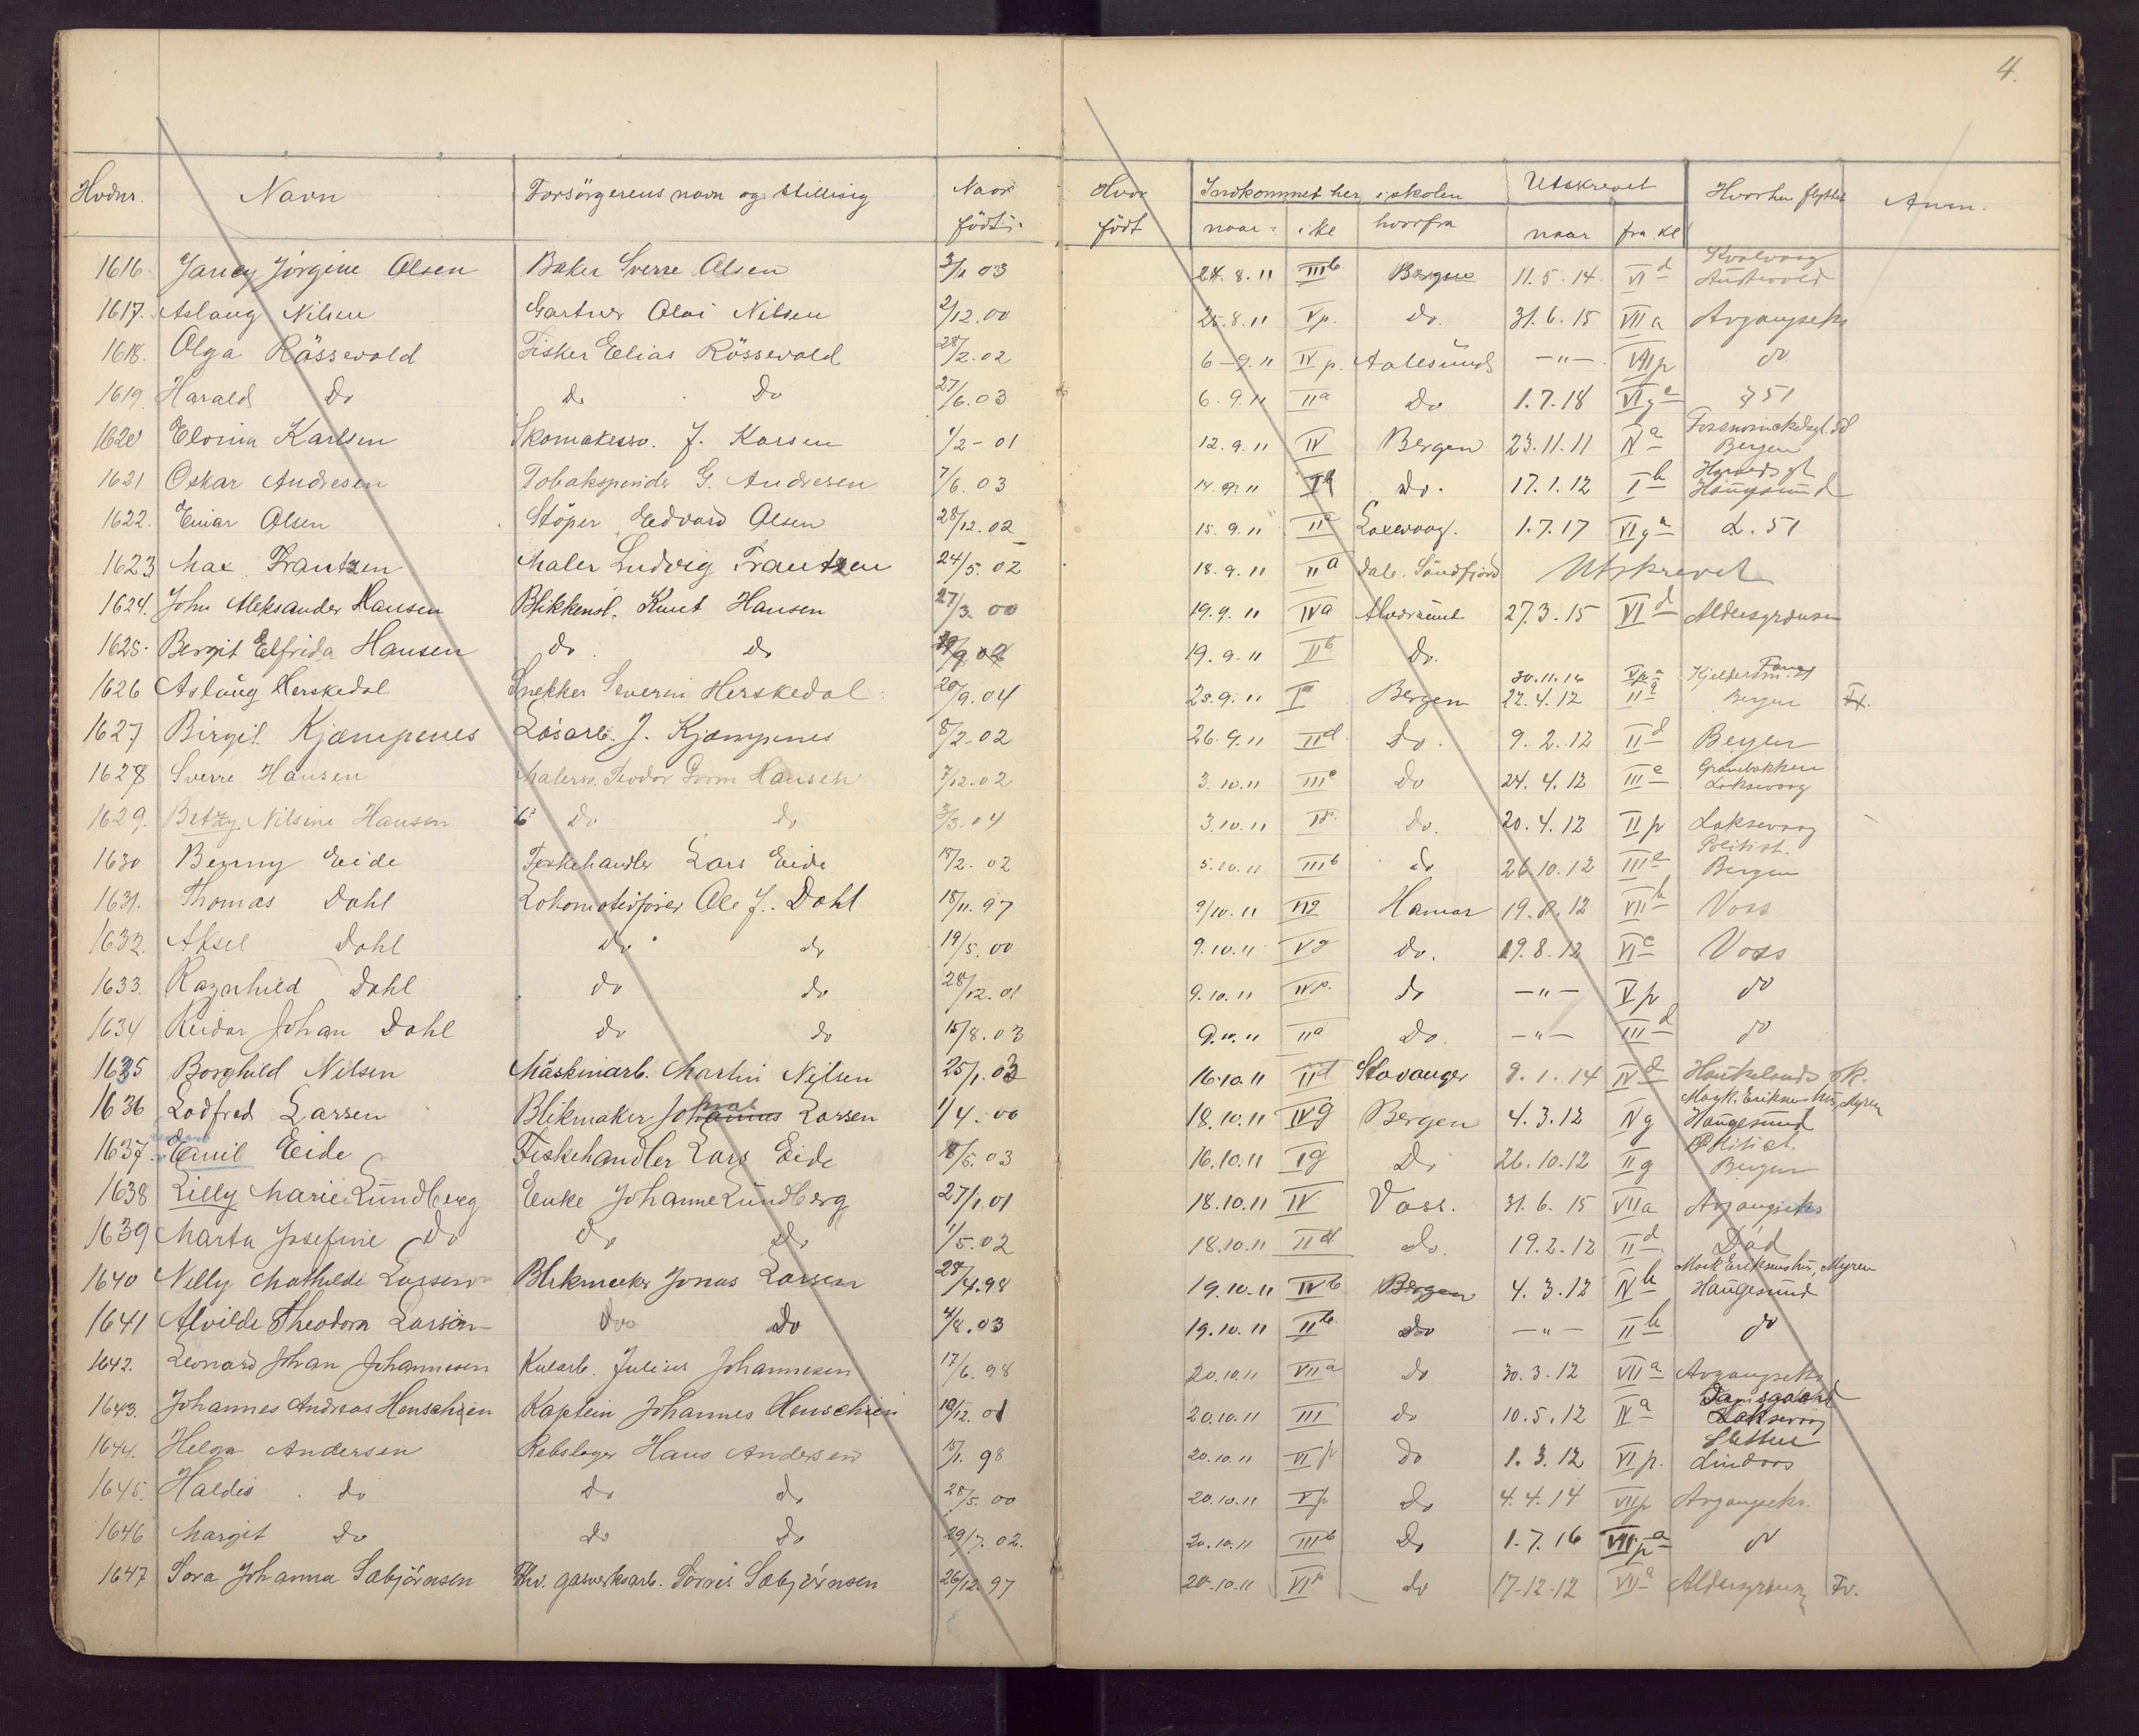 4.
Hvdnr. Navn Forsörgerens navn og stilling Naar födt: Hvor födt Indkommet her i skolen Utskrevet Hvorhen flyttet Anm.
naar: i kl hvorfra naar fra kl
Kvalvaag
1616 Jørgine Olsen Baker Sverre Olsen 3/11 03 24.8.11 IIIb Bergen 11.5.14 VId Austevold
1617. Aslaug Nilsen Gartner Olai Nilsen 2/12.00 25.8.11 Vp. Do. 31.6.15 VIIa Avgangseks
1618. Olga Rössevold Fisker Elias Rössevold 28/2.02 6-9.11 IVp. Aalesund —"— VIIp do
1619. Harald Do Do Do 27/6.03 6.9.11 IIa Do 1.7.18 § 51
1620 Karlsen J. Karsen 1/2-01 12.9.11 IV Bergen 23.11.11 IVa Bergen
1621 Oskar Andresen Tobakspinder G. Andresen 7/6.03 14.9.11 Do. 17.1.12 Ib Haugesund
1622. Einar Olsen Stöper Edvard Olsen 28/12.02 15.9.11 IIa Laxevaag. 1.7.17 VIga L. 51
1623 Max Frantzen Maler Ludvig Frantzen 24/5.02 18.9.11 IIa Dale. Söndfjord Utskrevet
1624. John Aleksander Hansen Blikkensl. Knut Hansen 27/3.00 19.9.11 IVa 27.3.15 VId Aldersgrænsen
1625. Bergit Elfrida Hansen do do 19.9.11 IIb Do.
30.11.16 Fana
1626 Aslaug Herskedal Snekker Severin Herskedal 20/9.04 23.9.11 Ia Bergen 22.4.12 IIa Bergen
1627 Birgit Kjæmpenes Lösarb. J. Kjæmpenes 8/2-02 26.9.11 IId Do. 9.2.12 IId Bergen
1628 Sverre Hansen Malersv. Teodor Gorm Hansen 7/12.02 3.10.11 IIIe Do 24.4.12 IIIe Laksevaag
1629. Betzy Nilsine Hansen Do do 3/3.04 3.10.11 Do. 20.4.12 IIp Laksevaag
1630 Benny Eide Fiskehandler Lars Eide 18/2.02 5.10.11 IIIb do 26.10.12 IIIe Bergen
1631. Thomas Dahl Lokomotivförer Ole J. Dahl 18/11.97 9/10.11 Hamar 19.8.12 VIIb Voss
1632. Aksel Dahl do do 19/5.00 9.10.11 Vg Do. 19.8.12 VIe Voss
1633. Ragnhild Dahl do do 28/12.01 9.10.11 IVp. do —"— Vp do
1634 Reidar Johan Dahl do do 15/8.03 9.10.11 IIa Do. —"— IIId do
1635 Borghild Nilsen Maskinarb. Martin Nilsen 25/1.03 16.10.11 IId Stavanger 9.1.14 IVd Haukelands sk.
Mark. Eriksens hus, Myren
1636 Lodfred Larsen Blikmaker Johannes Larsen 1/4.00 18.10.11 IVg Bergen 4.3.12 IVg Haugesund
1637. Emil Eide Fiskehandler Lars Eide 18/5.03 16.10.11 Ig Do 26.10.12 IIg Bergen
1638 Lilly Marie Lundberg Enke Johanne Lundberg 27/1.01 18.10.11 IV Voss. 31.6.15 VIIa Avgangseks
1639 Marta Josefine Do do do 1/5.02 18.10.11 IId do. 19.2.12 IId Död
Mark Eriksens hus, Myren
1640 Nelly Mathilde Larsen Blikmaker Jonas Larsen 28/4.98 19.10.11 IVb Bergen 4.3.12 IVb Haugesund
1641 Alvilde Theodora Larsen Do Do 4/8.03 19.10.11 IIb do —"— IIb do
1642. Leonard Johan Johannesen Kularb. Julius Johannesen 17/6.98 20.10.11 VIIa do 30.3.12 VIIa Avgangseks
1643. Johannes Andreas Henschien Kaptein Johannes Henschien 19/12.01 20.10.11 III do 10.5.12 IVa Laksevaag
1644. Helga Andersen Rebslager Hans Andersen 15/1.98 20.10.11 VIp do 1.3.12 VIp. Lindaas
1645. Haldis do do do 28/5.00 20.10.11 Vp do 4.4.14 VIIp Avgangseks.
1646 Margit Do do do 29/7.02. 20.10.11 IIIb Do 1.7.16 do
1647 Tora Johanna Sæbjörnsen Fhv. gasverksarb. Sæbjörnsen 26/12.97 20-10.11 VIa do 17-12-12 VIIa Aldersgrænse Fv.